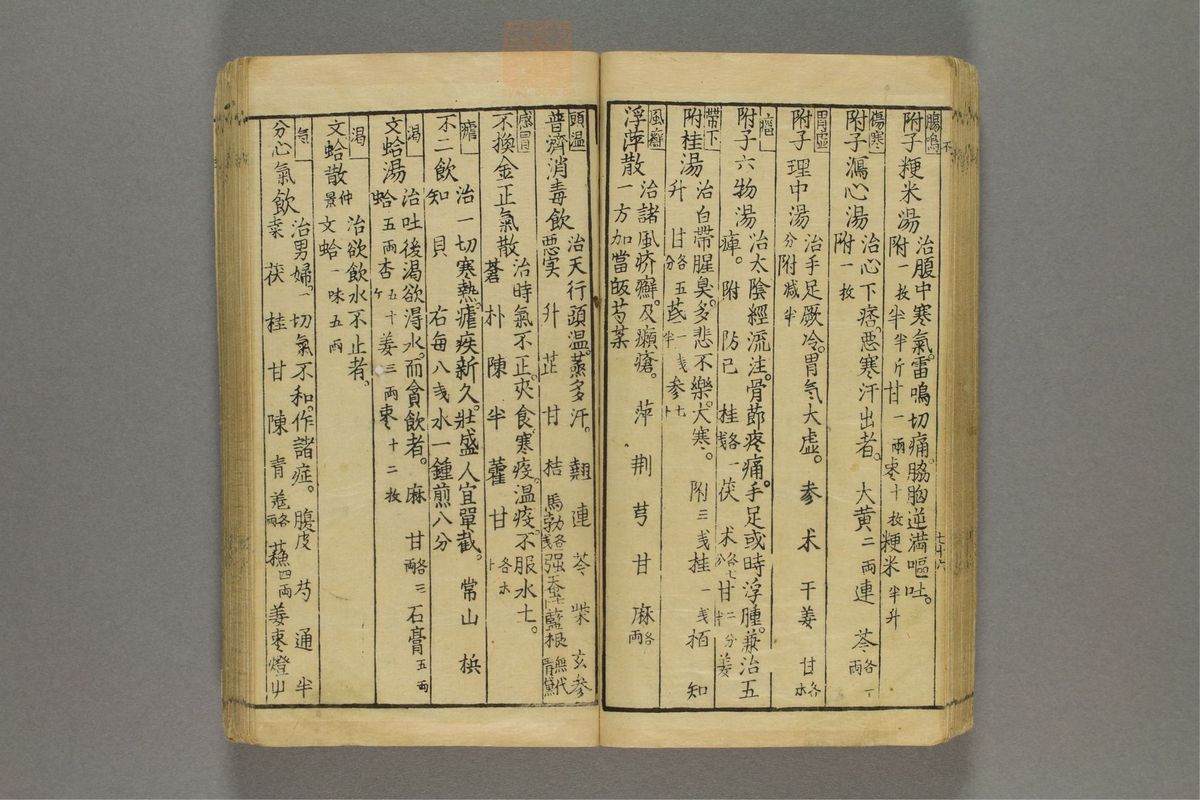 腸鳴
附子粳米湯
治腹中寒氣。雷鳴切痛。脇胸逆満嘔吐。
附一枚半半斤甘一兩枣十枚粳米半升
傷寒
附子瀉心湯
治心下痞。悪寒汗出者。大黄二両連芩各一両
附一枚
胃虚
附子理中湯
治手足厥冷。胃気大虚。参朮干姜甘各
分附减半
附子六物湯
治太陰經流注。骨節疼痛。手足或時浮腫。兼治五
痺。附防己桂各一戋茯朮各七分甘二分姜
帯下
附桂湯
治白帯腥臭。多悲不樂。大寒。附三戋桂一戋栢知
升甘各五分芪一戋半参七卜
風癬
浮萍散
治諸風疥癬。及癩瘡。萍荆芎甘麻各両
一方加當皈芍葉
七十六
頭温
普濟消毒飲
治天行頭温。蒸多汗。翹連芩柴玄参
悪实升芷甘桔馬勃各戋蚕藍根無代青黛
感冒
不換金正氣散
治時氣不正。夾食。寒疫。温疫。不服水土。
蒼朴陳半藿甘各
瘧
不二飲
治一切寒熱。瘧疾新久。壯盛人宜單截。常山梹
知貝右毎八戋水一鍾煎八分
渴
文蛤湯
治吐後渴欲得水。而貪飲者。麻甘各三両石膏五両
蛤五両杏五十ケ姜三両枣十二枚
渴
文蛤散
仲景
治欲飲水不止者。
文蛤一味五両
氣
分心氣飲
治男婦。一切氣不和。作諸症。腹皮芍通半
桒茯桂甘陳青羗各両蘓四両姜枣燈